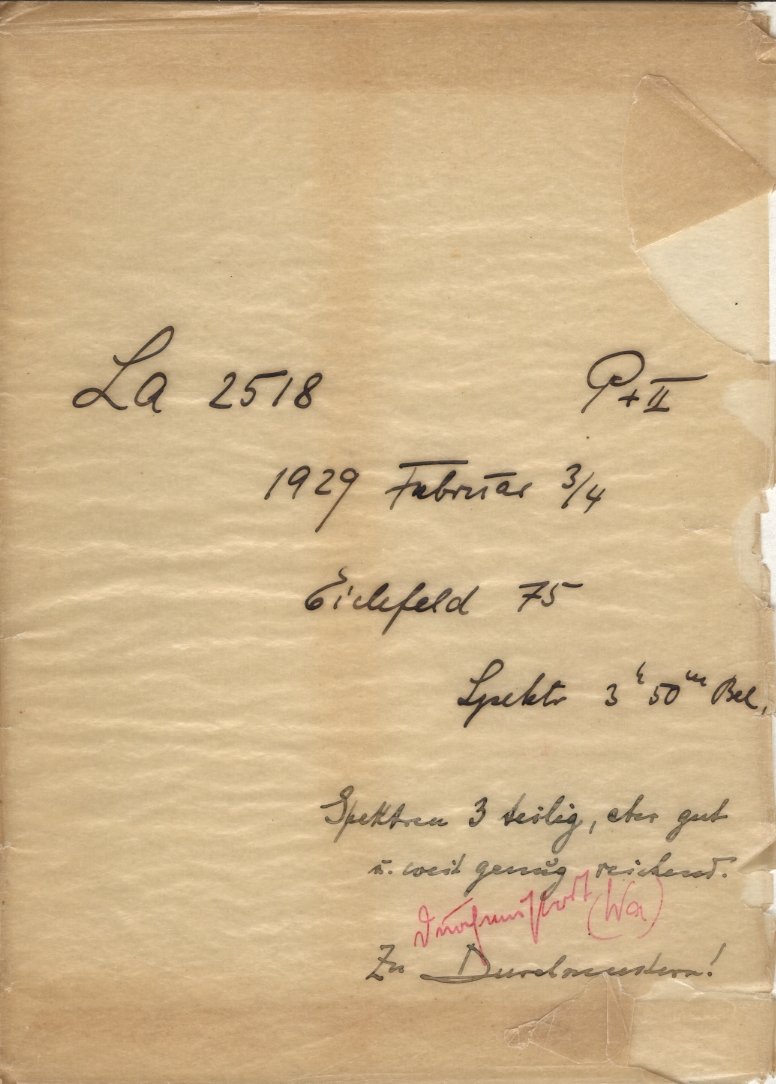 La 2518 P+II
1929 Februar 3/4
Eichfeld 75
Spektr 3h 50m Bel.
Spektren 3 teilig, aber gut
u. weit genug reichend.
durchmustert (Wa)
Zu Durchmustern!